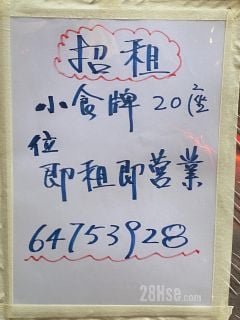 招租
小食牌 20座
位
即租即营業
64753928
28Hse.com